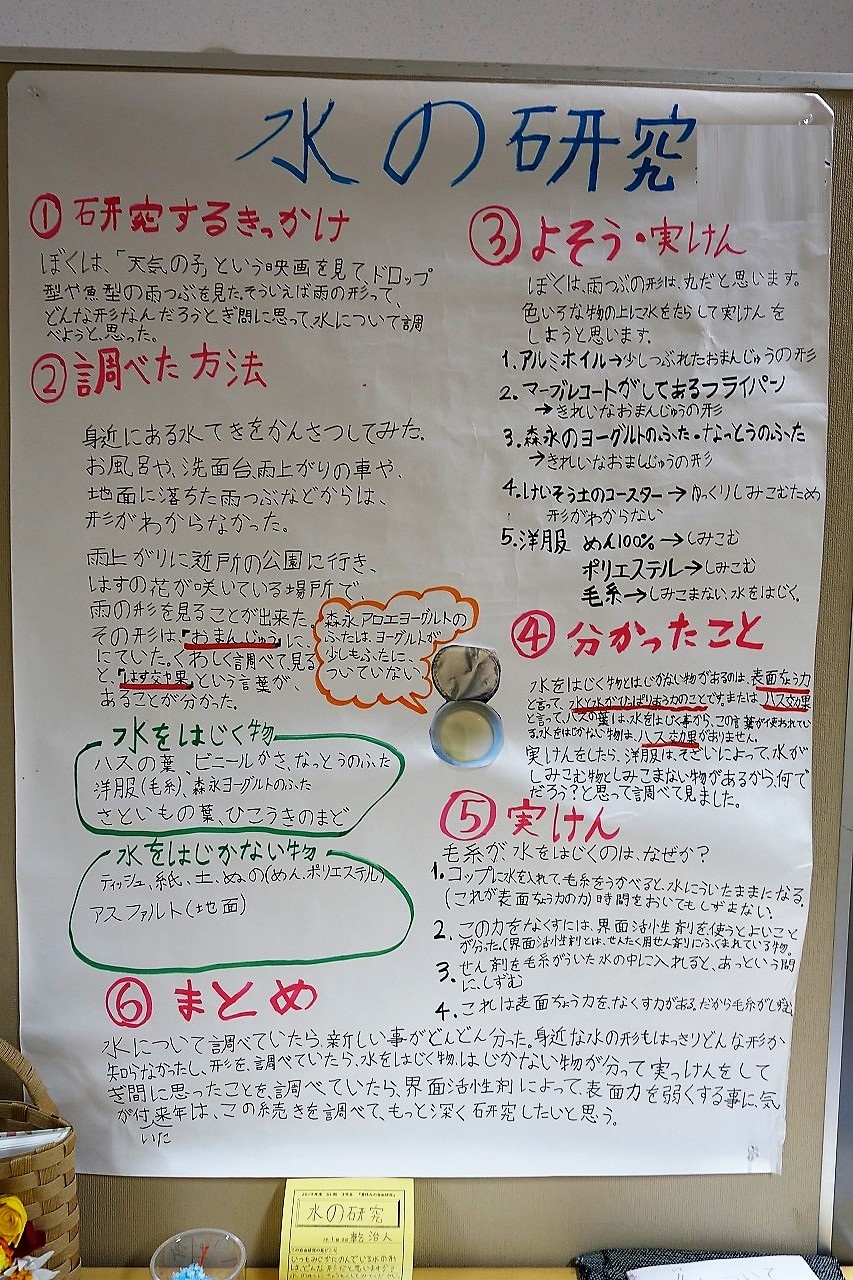 水の研究
①研究するきっかけ
ぼくは、「天気の子」という映画を見て、ドロップ
型や魚型の雨つぶを見た。そういえば雨の形って、
どんな形なんだろうとぎ問に思って、水について調
べようと、思った。
②調べた方法
身近にある水てきをかんさつしてみた。
お風呂や、洗面台、雨上がりの車や、
地面に落ちた雨つぶなどからは、
形がわからなかった。
雨上がりに近所の公園に行き、
はすの花が咲いている場所で、
雨の形を見ることが出来た。
その形は、『おまんじゅう』に、
にていた。くわしく調べて、見る
と、『はす効果』という言葉が、
あることが分かった。
森永アロエヨーグルトの
ふたは、ヨーグルトが
少しもふたに、
ついていない。
水をはじく物
ハスの葉、ビニールかさ、なっとうのふた
洋服(毛糸)、森永ヨーグルトのふた
さといもの葉、ひこうきのまど
水をはじかない物
ティッシュ、紙、土、ぬの(めん、ポリエステル)
アスファルト(地面)
③よそう・実けん
ぼくは、雨つぶの形は、丸だと思います。
色いろな物の上に水をたらして実けんを
しようと思います。
1.アルミホイル→少しつぶれたおまんじゅうの形
2.マーブルコートがしてあるフライパン
→きれいなおまんじゅうの形
3.森永のヨーグルトのふた・なっとうのふた
→きれいなおまんじゅうの形
4.けいそう土のコースター→ゆっくりしみこむため
形がわからない
5.洋服 めん100%→しみこむ
ポリエステル→しみこむ
毛糸→しみこまない、水をはじく。
④分かったこと
水をはじく物とはじかない物があるのは、表面ちょう力
と言って、水と水がひっぱりあう力のことです。または、ハス効果
と言って、ハスの葉は、水をはじく事から、この言葉が使われてい
る。水をはじかない物は、ハス効果がありません。
実けんをしたら、洋服は、そざいによって、水が
しみこむ物としみこまない物があるから、何で
だろう?と思って調べて見ました。
⑤実けん
毛糸が水をはじくのは、なぜか?
1.コップに水を入れて、毛糸をうかべると、水にういたままになる。
(これが表面ちょう力の力)時間をおいてもしずまない。
2.この力をなくすには、界面活性剤を、使うとよいこと
が分った。(界面活性剤とは、せんたく用せん剤にふくまれている物。
3.せん剤を毛糸がういた水の中に入れると、あっという間
に、しずむ
4.これは表面ちょう力を、なくす力がある。だから毛糸がしずむ
⑥まとめ
水について調べていたら、新しい事がどんどん分った。身近な水の形もはっきりどんな形か
知らなかったし、形を、調べていたら、水をはじく物、はじかない物が分って実っけんをして
ぎ問に思ったことを、調べていたら、界面活性剤によって、表面力を弱くする事に、気
が付いた 来年は、この続きを調べて、もっと深く研究したいと思う。
水の研究
乾治人